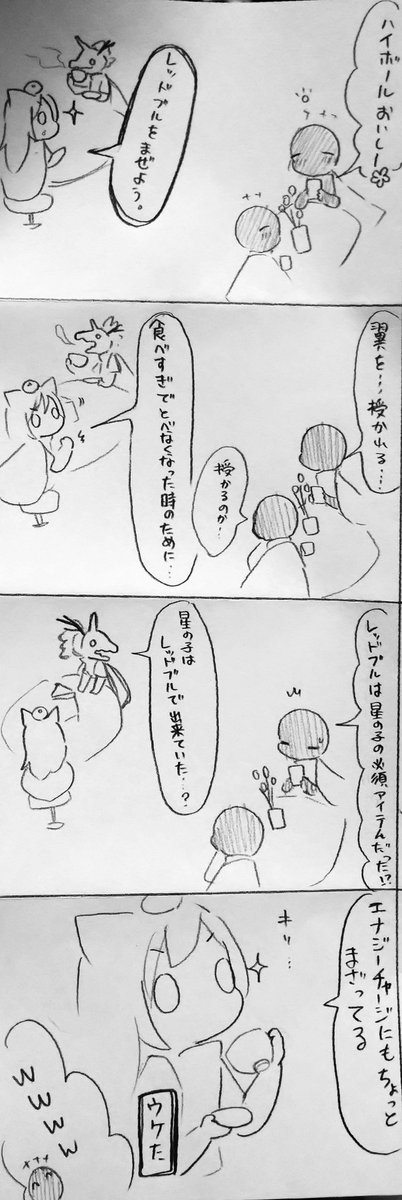 ハイボールおいしー
レッドブルをまぜよう。
翼を…授かれる…
授かるのか…
食べすぎで
とべなくなった時のために…
レッドブルは星の子の必須アイテムだった!?
星の子は
レッドブルで出来ていた…?
エナジーチャージにもちょっと
まざってる
キリ…
ウケた
wwww